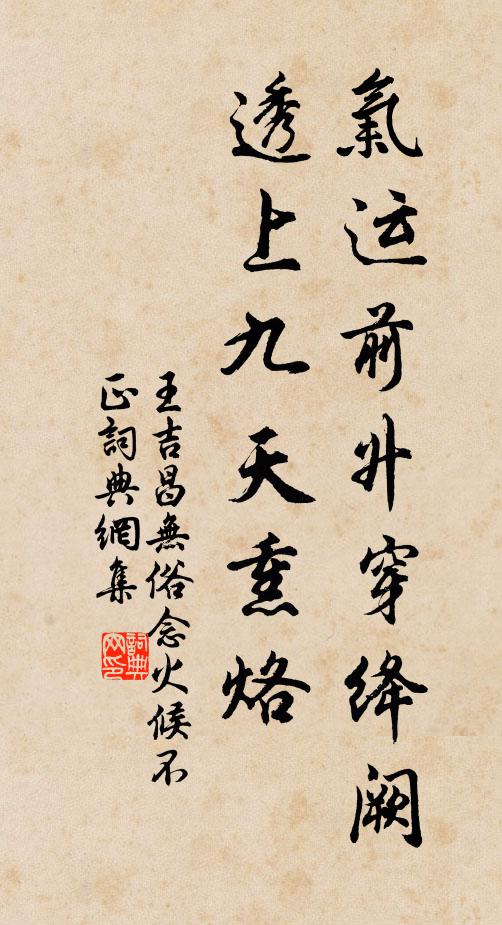 氣运前升穿绛阙
透上九天熏烙
王吉昌無俗念火候不
正詞典網集
詞典网印